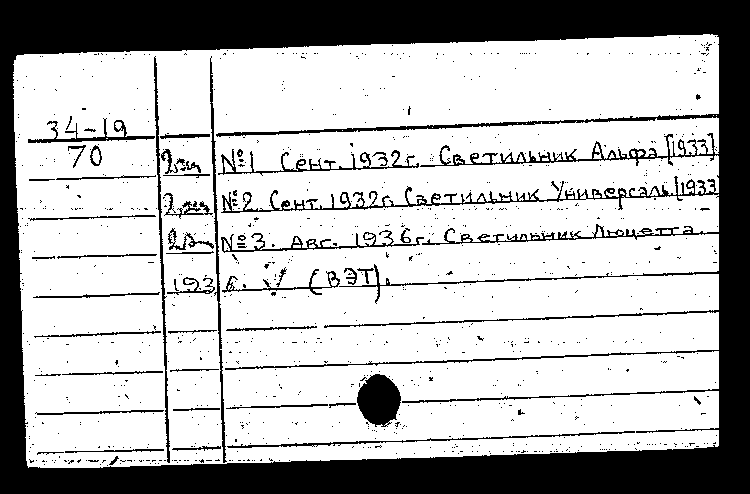 34-19
70 №1 Сент. 1932г. Светильник Альфа [1933]
№2 Сент. 1932г. Светильник Универсаль [1933
№3. Авг. 1936г. Светильник Люцетта.
1936. (ВЭТ).